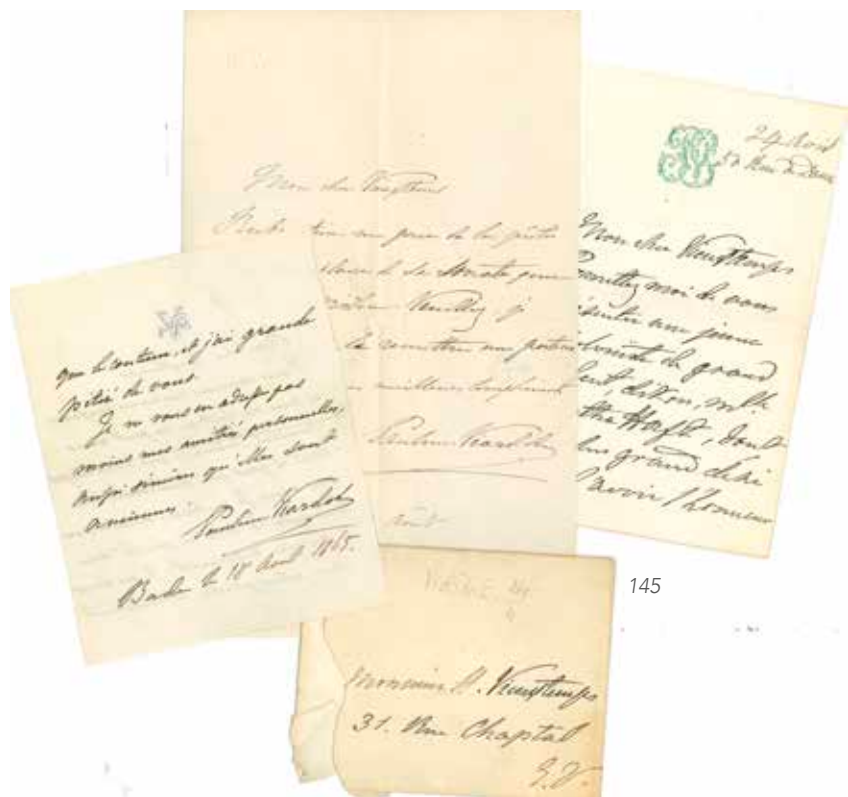 Mon cher Vieuxtemps
de la
de sa Sonate pour
Veuillez
la remettre au porteur
meilleurs compliments
Pauline Viardot
août
24 Avril
50 Rue de Douai
Mon cher Vieuxtemps
Permettez moi de vous
présenter une jeune
grand
talent, dit-on, Mlle
dont
plus grand désir
d'avoir l'honneur
que le contenu, et j'ai grande
pitié de vous.
Je ne vous en adresse pas
moins mes amitiés personnelles,
aussi sincères qu'elles sont
anciennes.
Pauline Viardot
Bade le 18 Août 1865.
Monsieur H. Vieuxtemps
31. Rue Chaptal
E. V.
145